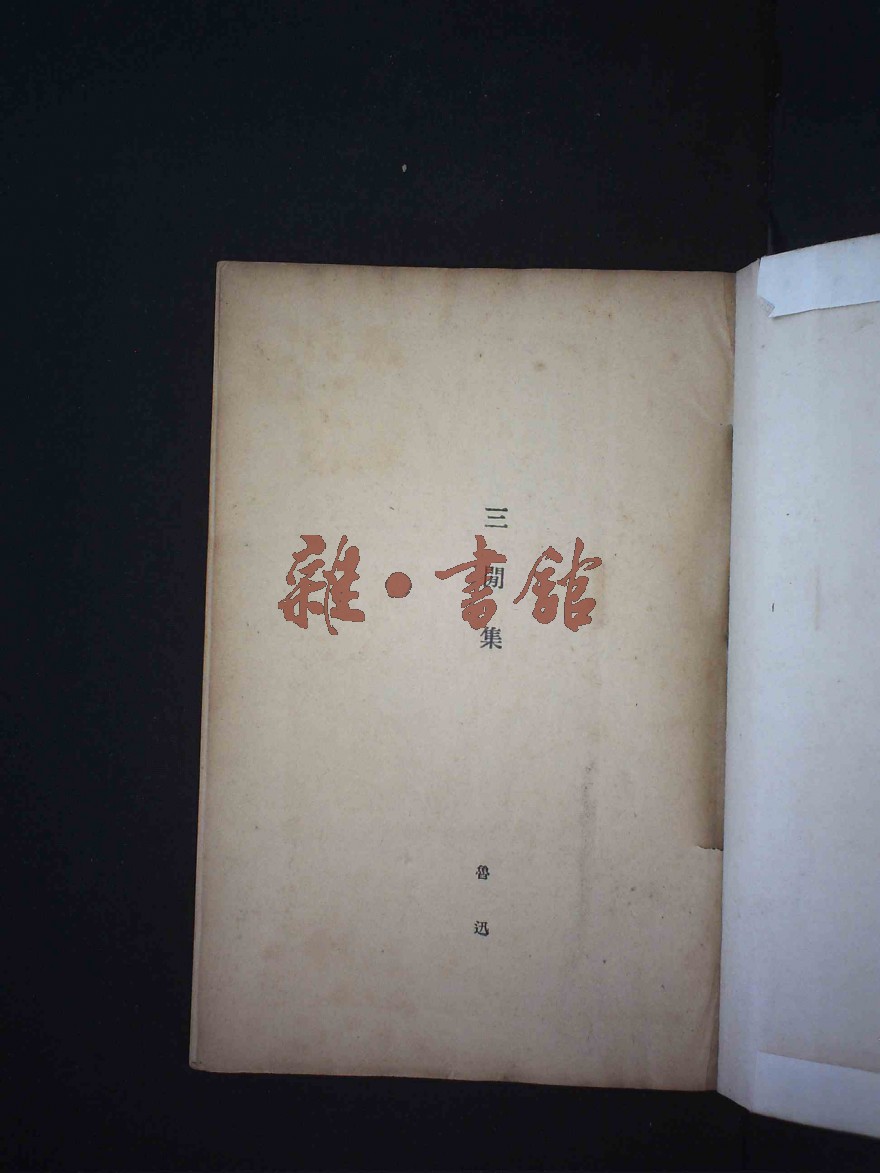 三閒集
魯迅
雜·書館